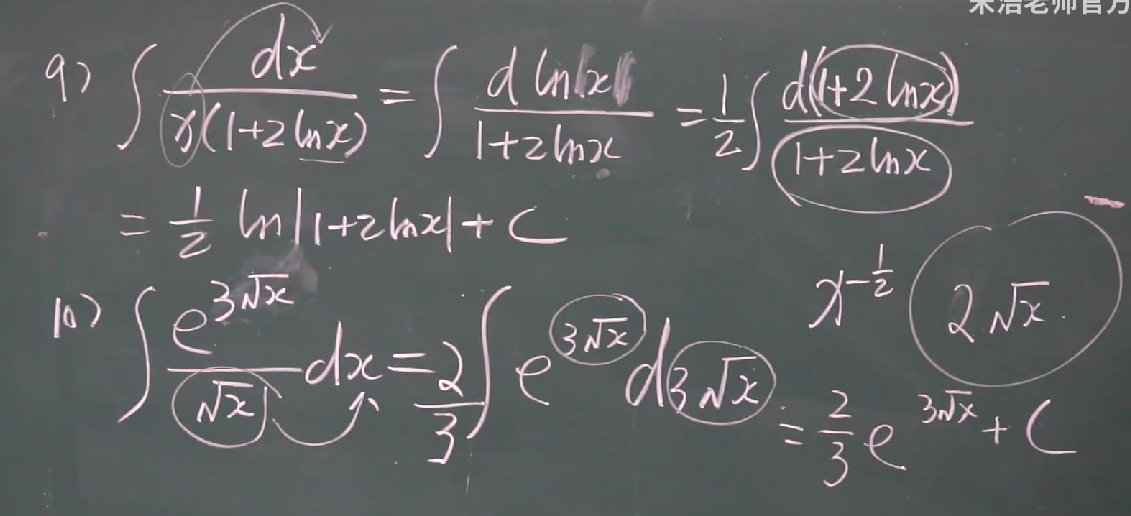 宋浩老师官方
9) ∫ dx / x(1+2lnx) = ∫ d ln|x| / 1+2lnx = 1/2 ∫ d(1+2lnx) / 1+2lnx
= 1/2 ln|1+2lnx| + C
x^{-1/2} 2√x
10) ∫ e^{3√x} / √x dx = 2/3 ∫ e^{3√x} d3√x = 2/3 e^{3√x} + C